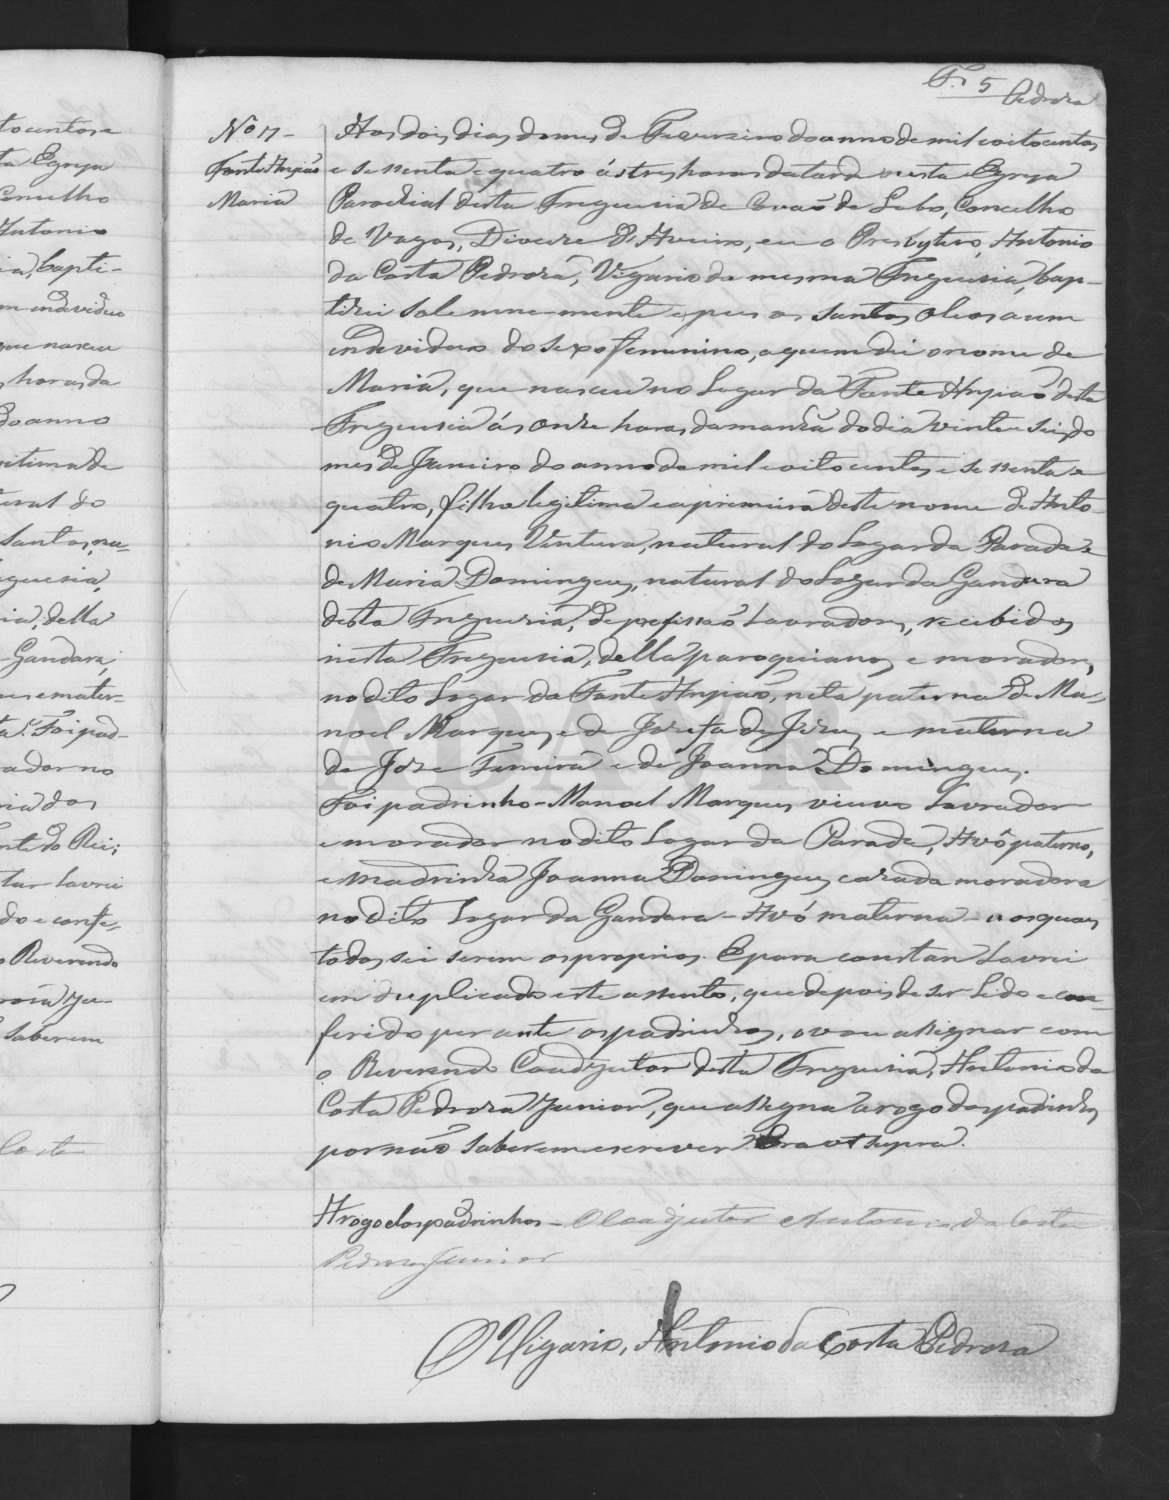 Fs. 5 Pedroza
Nº 17 -
Fonte Angião
Maria
Aos dois dias do mes de Fevereiro do anno de mil e oito centos
e sessenta e quatro ás tres horas da tarde nesta Egreja
Parochial desta Freguesia de Covão do Lobo, Concelho
de Vagos, Diocese de Aveiro, eu o Presbytero, Antonio
da Costa Pedroza, Vigario da mesma Freguesia, bap-
tizei solemnemente e puz os Santos Oleos a um
individuo do sexo femenino, a quem dei o nome de
Maria, que nasceu no Logar da Fonte Angião desta
Freguesia ás onze horas da manhã do dia vinte e seis do
mes de Janeiro do anno de mil e oito centos e sessenta e
quatro, filha legitima e a primeira deste nome de Anto
nio Marques Ventura, natural do Logar da Parada e
de Maria Domingues, natural do Logar da Gandara
desta Freguesia, de profissão Lavradores, recebidos
nesta Freguesia, della paroquianos e moradores,
no dito Logar da Fonte Angião, neta paterna de Ma-
noel Marques e de Josefa de Jezus e materna
de Joze Ferreira e de Joanna Domingues.
Foi padrinho - Manoel Marques viuvo Lavrador
e morador no dito Logar da Parada, Avô paterno,
e madrinha Joanna Domingues cazada moradora
no dito Logar da Gandara - Avó materna - os quaes
todos sei serem os proprios. E para constar Lavrei
em duplicado este assento, que depois de ser Lido e con-
ferido perante os padrinhos, o vou assignar com
o Reverendo Coadjutor desta Freguesia, Antonio da
Costa Pedroza Junior, que assigna a rogo dos padrinhos
por não saberem escrever. Era ut supra.
A rogo dos padrinhos - O Coadjutor Antonio da Costa
Pedroza Junior
O Vigario, Antonio da Costa Pedroza